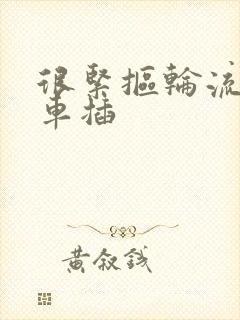 很緊摳輪流
車插
黃叙錢